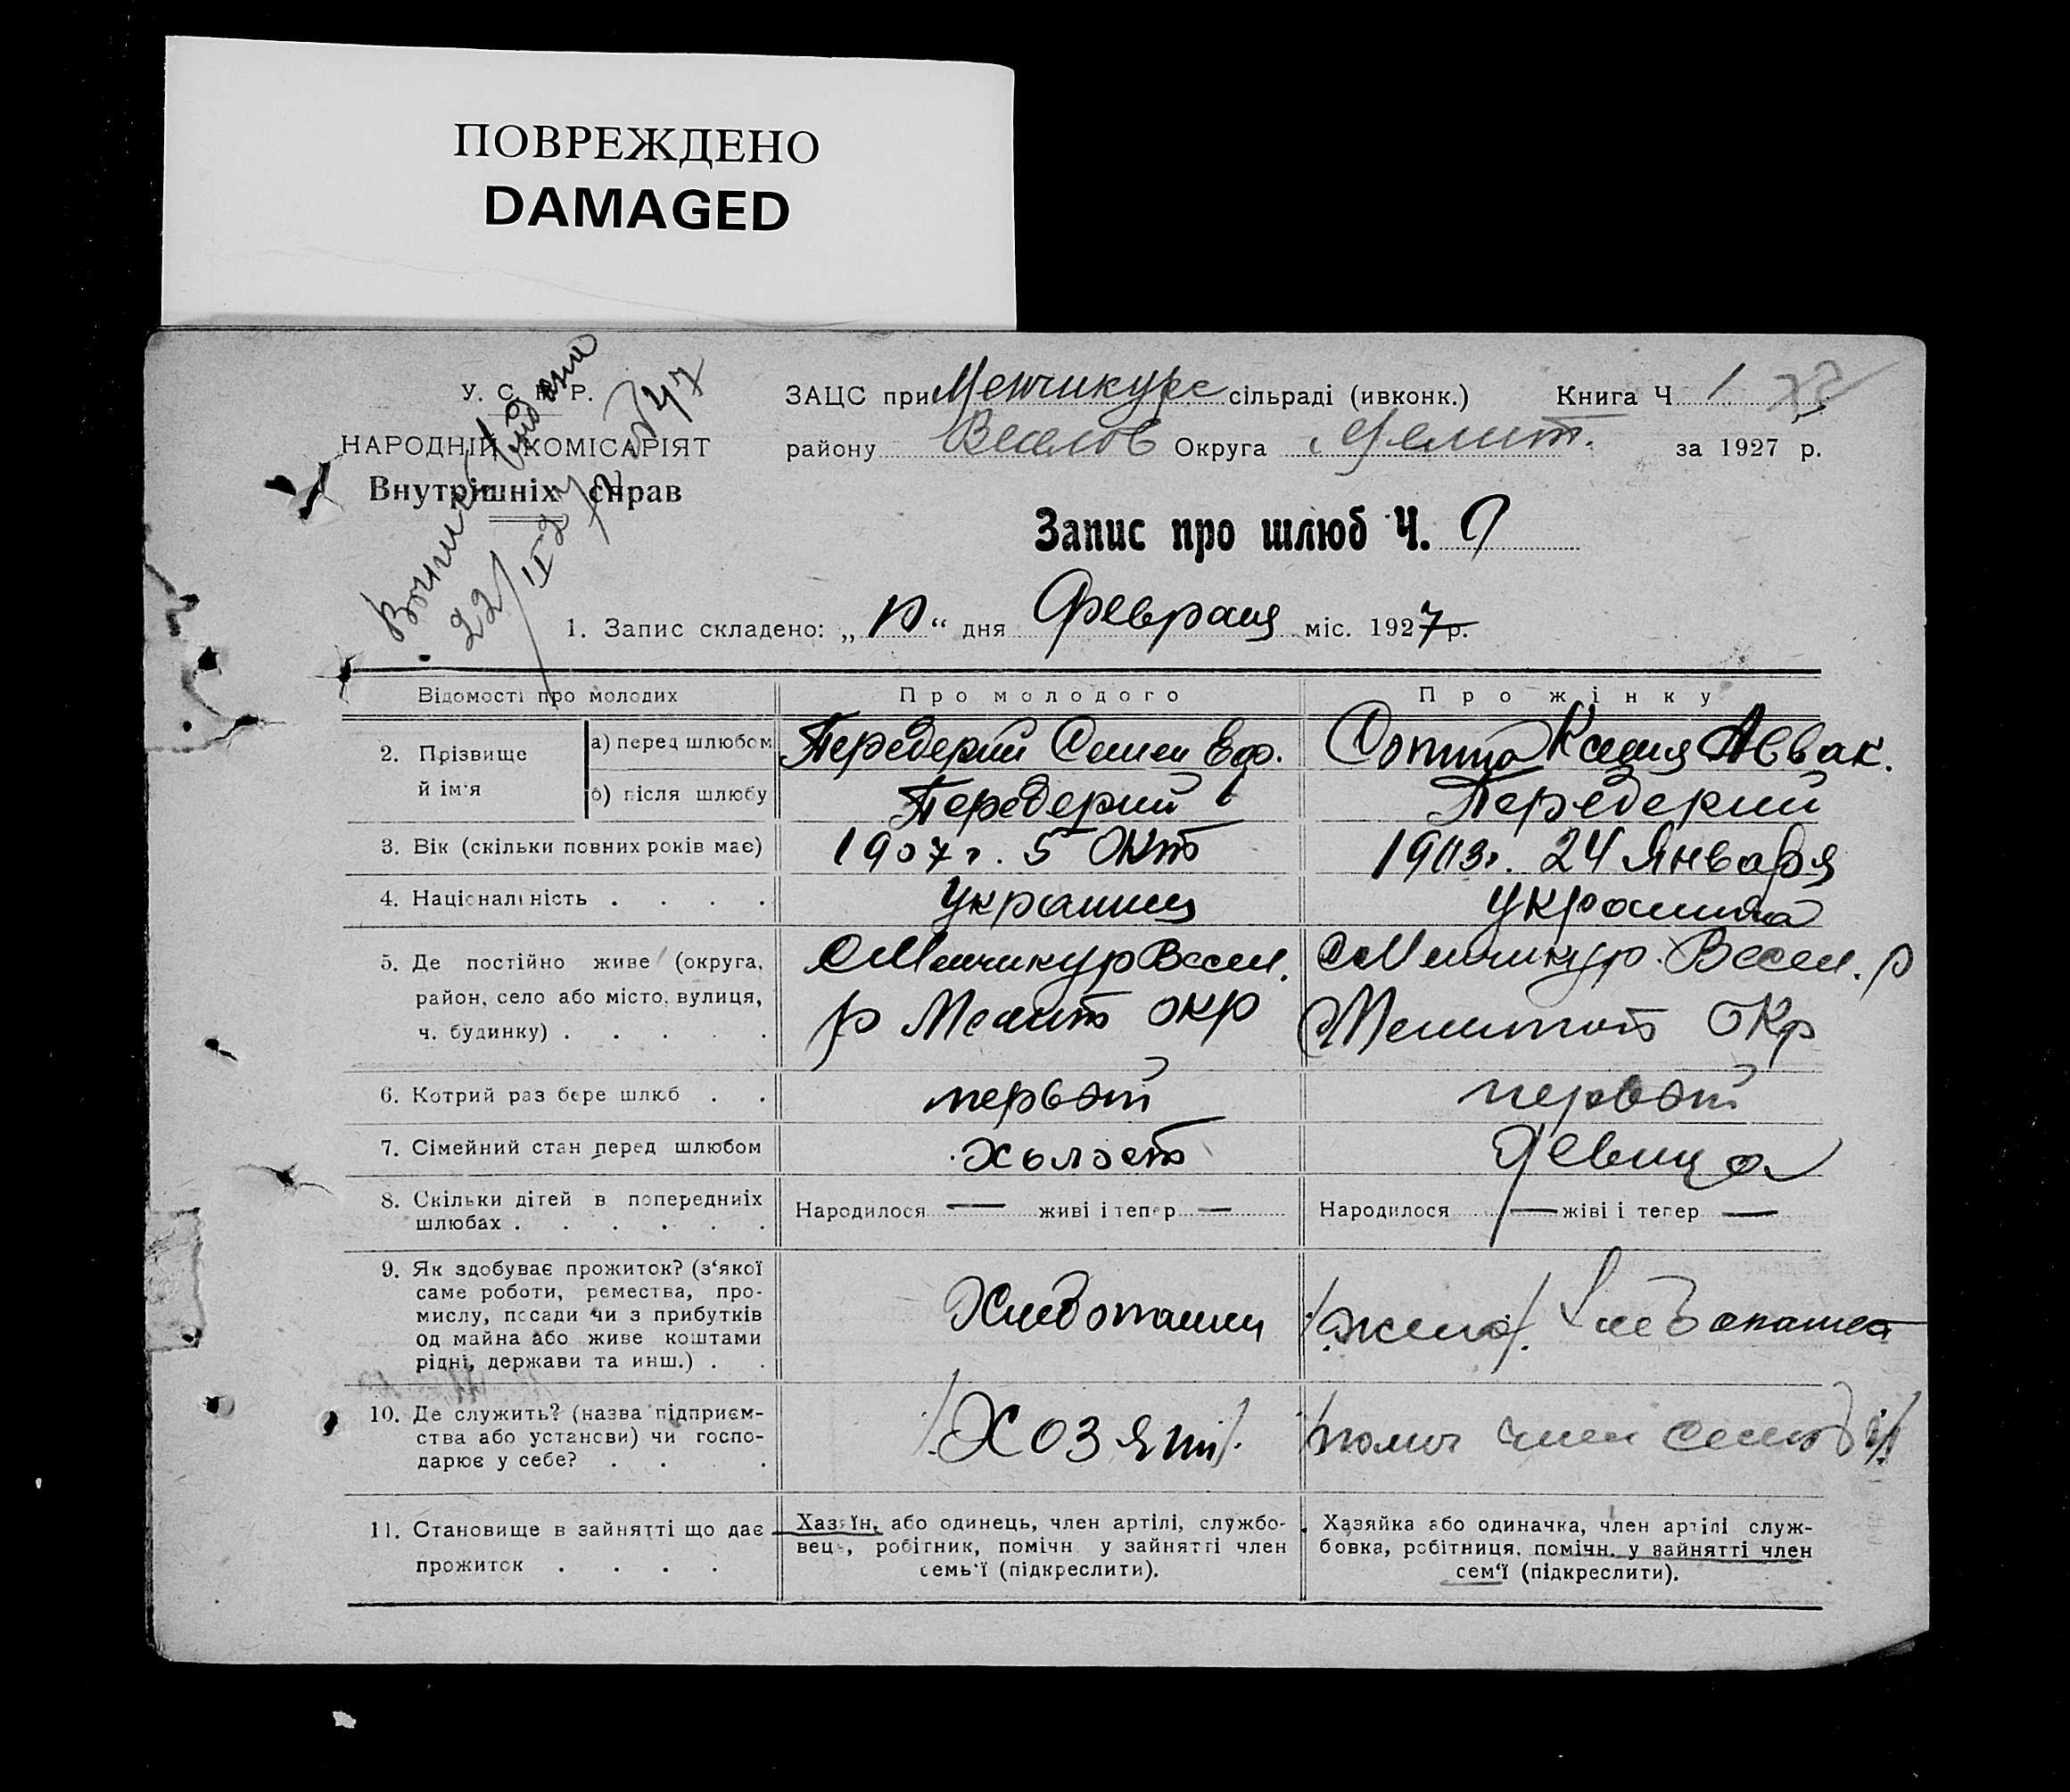 ПОВРЕЖДЕНО
DAMAGED
У. С. Р. Р.
НАРОДНІЙ КОМІСАРІЯТ
Внутрішніх справ
22/II 27
ЗАЦС при Менчикурс сільраді (ивконк.) Книга Ч 1
району Веселов Округа Мелит. за 1927 р.
Запис про шлюб Ч. 9
1. Запис складено: „ “ дня Февраля міс. 1927 р.
Відомості про молодих Про молодого Про жінку
2. Прізвище й ім‘я
а) перед шлюбом Передерий Семен Еф. Ксения Аввак.
б) після шлюбу Передерий Передерий
3. Вік (скільки повних років має) 1907 г. 5 Окт 24 Января
4. Національність . . . . Украинец Украинка
5. Де постійно живе (округа, С Менчикур Весел. С Менчикур. Весел. р
район, село або місто, вулиця, р Мелит окр Мелитоп Окр
ч. будинку) . . . . .
6. Котрий раз бере шлюб . . первый первый
7. Сімейний стан перед шлюбом холост девица
8. Скільки дітей в попередниіх Народилося — живі і тепер — Народилося — жіві і тепер —
шлюбах . . . . . .
9. Як здобуває прожиток? (з‘якої
саме роботи, ремества, про-
мислу, посади чи з прибутків Хлебопашец /жена/. Хлебопашца
од майна або живе коштами
рідні, держави та инш.) . .
10. Де служить? (назва підприєм-
ства або установи) чи госпо- /Хозяин/. /помог член семьи/
дарює у себе? . . .
11. Становище в зайнятті що дає Хазяїн, або одинець, член артілі, службо- Хазяйка або одиначка, член артілі служ-
прожиток . . . . вець, робітник, помічн. у зайнятті член бовка, робітниця, помічн. у зайнятті член
семь‘ї (підкреслити). сем‘ї (підкреслити).